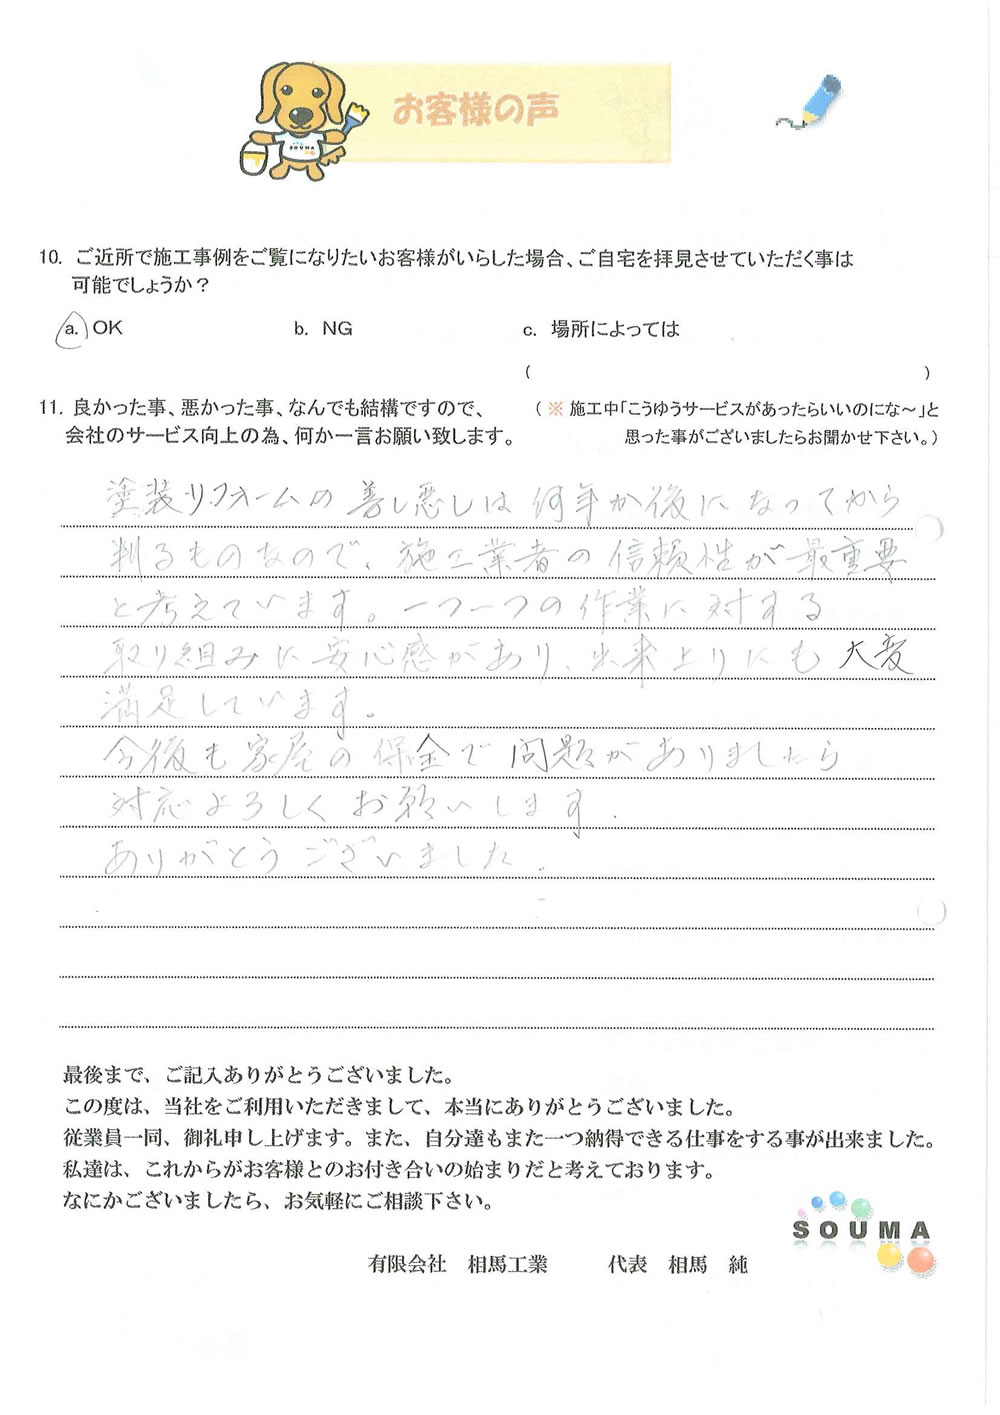 お客様の声
SOUMA
10. ご近所で施工事例をご覧になりたいお客様がいらした場合、ご自宅を拝見させていただく事は
可能でしょうか？
a. OK b. NG c. 場所によっては
( )
11. 良かった事、悪かった事、なんでも結構ですので、 （ ※ 施工中「こうゆうサービスがあったらいいのにな～」と
会社のサービス向上の為、何か一言お願い致します。 思った事がございましたらお聞かせ下さい。）
塗装リフォームの善し悪しは何年か後になってから
判るものなので、施工業者の信頼性が最重要
と考えています。一つ一つの作業に対する
取り組みに安心感があり、出来上りにも大変
満足しています。
今後も家屋の保全で問題がありましたら
対応よろしくお願いします.
ありがとうございました.
最後まで、ご記入ありがとうございました。
この度は、当社をご利用いただきまして、本当にありがとうございました。
従業員一同、御礼申し上げます。また、自分達もまた一つ納得できる仕事をする事が出来ました。
私達は、これからがお客様とのお付き合いの始まりだと考えております。
なにかございましたら、お気軽にご相談下さい。
SOUMA
有限会社 相馬工業 代表 相馬 純